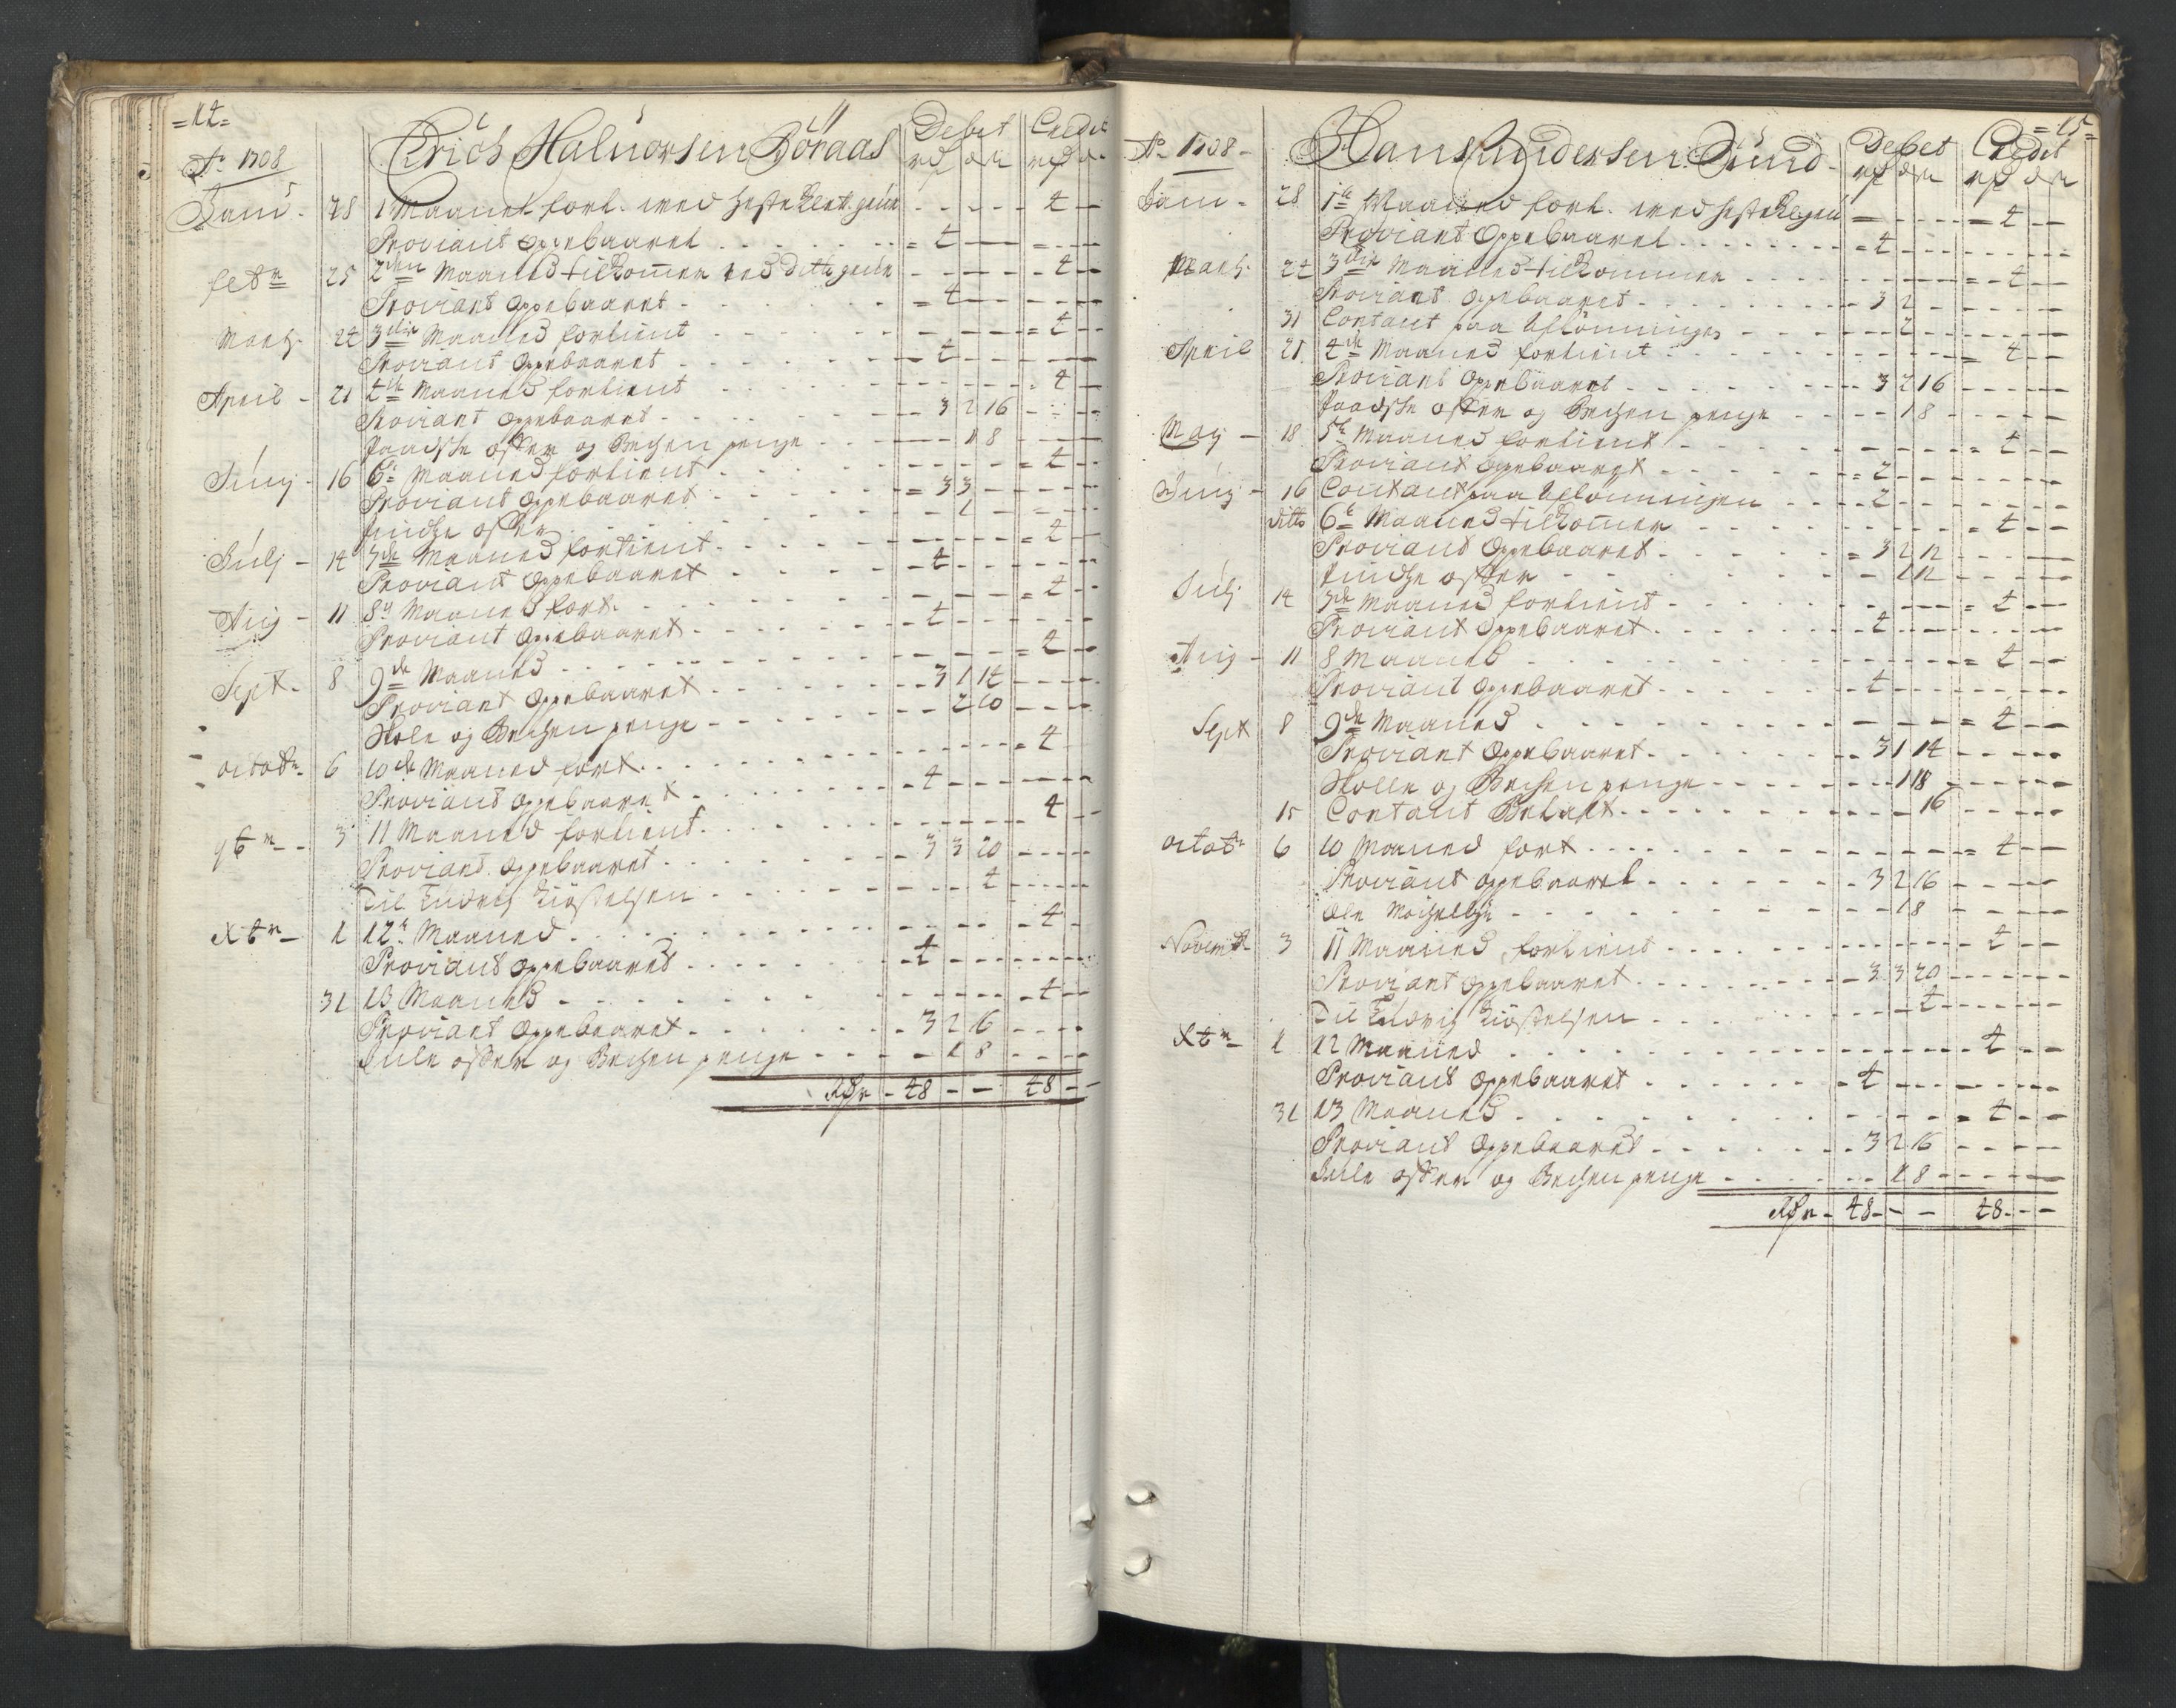 =14=
Ao 1708
Erich Haluorsen Böraas Debet Credit
rd ort rd o
Janu. 28 1 Maanet fort. med heste - - - - 4 -
Proviant Oppebaaret - 4 - - - -
febr 25 2den Maaned tilkommer ved ditto - - - - 4 -
Proviant Oppebaaret - 4 - - - -
Marts 24 3die Maaned fortient - - - - 4 -
Proviant Oppebaaret - 4 - - - -
April - 21 4de Maaned fortient - - - - 4 -
Proviant Oppebaaret - 3 2 16 - - -
faadske oster og Bechen penge - - 1 8 - - -
Junj - 16 6te Maaned fortient - - - - 4 -
Proviant Oppebaaret - 3 3 - - - -
oster - - 1 - - - -
Julj - 14 7de Maaned fortient - - - - 4 -
Proviant Oppebaaret - 4 - - - -
Aug - 11 8de Maaned fort. - - - - 4 -
Proviant Oppebaaret - 4 - - - -
Sept - 8 9de Maaned - - - - 4 -
Proviant Oppebaaret - 3 1 14 - - -
Skole og Bechen penge - - 2 10 - - -
octobr 6 10de Maaned fort. - - - - 4
Proviant Oppebaaret - 4 - - - -
9br - 3 11 Maaned fortient - - - - 4 -
Proviant Oppebaaret - 3 3 20 - - -
Til Ludvig Kiöstelsen - - - 4 - - -
Xbr - 1 12te Maaned - - - - 4 -
Proviant Oppebaaret - 4 - - - -
31 13 Maaned - - - - 4 -
Proviant Oppebaaret - 3 2 16 - - -
Jule oster og Bechen penge - - 1 8 - - -
Rdr - 48 - - 48 - -
=15=
Ao 1708 -
Hans Andersen Sund Debet Credit
rd ort rd ort
Janu - 28 1te Maaned fort. med heste - - - - 4 -
Proviant Oppebaaret - 4 - - - -
Marts 24 3die Maaned tilkommer - - - - 4 -
Proviant Oppebaaret - 3 2 - - - -
31 Contant paa Aflönningen - - 2 - - - -
April 21 4de Maaned fortient - - - - 4 -
Proviant Oppebaaret - 3 2 16 - - -
faadske oster og Bechen penge - - 1 8 - - -
Maij - 18 5te Maaned fortient - - - - 4 -
Proviant Oppebaaret - 2 - - - -
Junj - 16 Contant paa Aflönningen - 2 - - - -
ditto 6te Maaned tilkommer - - - - 4 -
Proviant Oppebaaret - 3 2 12 - - -
oster - - 1 12 - - -
Julj 14 7de Maaned fortient - - - - 4 -
Proviant Oppebaaret - 4 - - - -
Aug - 11 8 Maaned - - - - 4 -
Proviant Oppebaaret - 4 - - - -
Sept 8 9de Maaned - - - - 4 -
Proviant Oppebaaret - 3 1 14 - - -
Skolle og Bechen penge - - 1 18 - - -
15 Contant Betalt - - - 16 - - -
octobr 6 10 Maaned fort - - - - 4 -
Proviant Oppebaaret - 3 2 16 - - -
Ole - - 1 8 - - -
Novembr 3 11 Maaned fortient - - - - 4 -
Proviant Oppebaaret - 3 3 20 - - -
Til Ludvig Kiöstelsen - - - 4 - - -
Xbr - 1 12 Maaned - - - - 4 -
Proviant Oppebaaret - 4 - - - -
31 13 Maaned - - - - 4 -
Proviant Oppebaaret - 3 2 16 - - -
Jule oster og Bechen penge - - 1 8 - - -
Rdr - 48 - - 48 - -